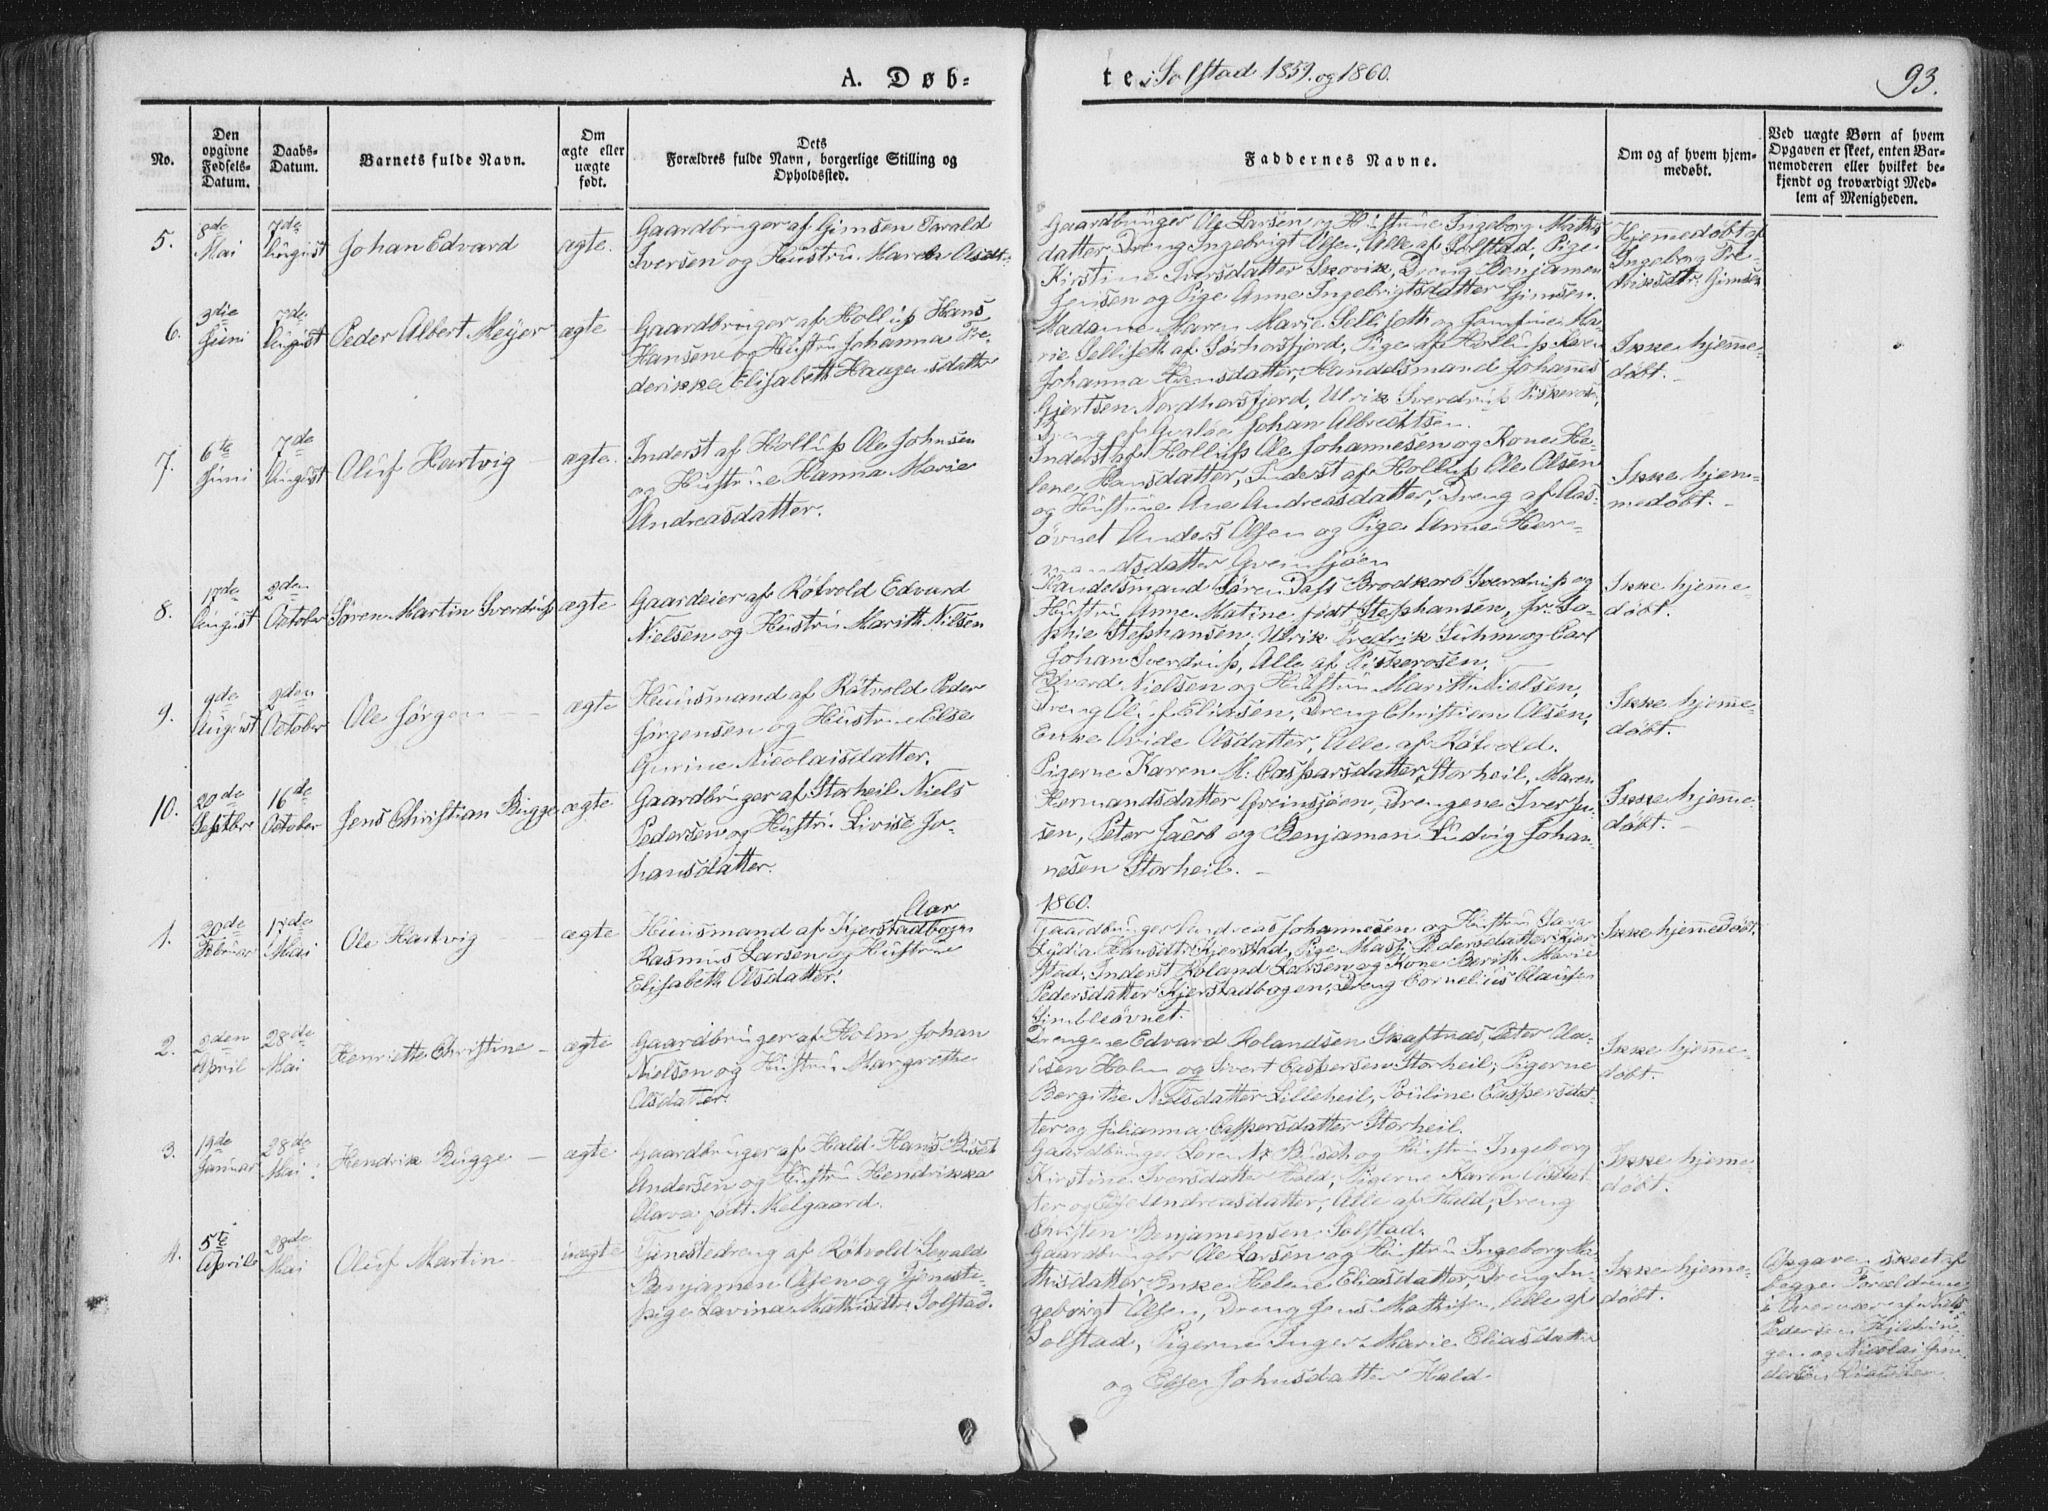 A. Døb-
te i Solstad 1859. og 1860.
93.
No.
Den
opgivne
Fødsels-
Datum.
Daabs-
Datum.
Barnets fulde Navn.
Om
ægte eller
uægte
født.
Dets
Forældres fulde Navn, borgerlige Stilling og
Opholdssted.
Faddernes Navne.
Om og af hvem hjem-
medøbt.
Ved uægte Børn af hvem
Opgaven er skeet, enten Bar-
nemoderen eller hvilket be-
kjendt og troværdigt Med-
lem af Menigheden.
5.
8de
Mai
7de
August
Johan Edvard
ægte.
Gaardbruger af Gimsen Tarald
Iversen og Hustru Maren Olsdtr
Gaardbruger Ole Larsen og Hustrue Ingeborg Mathis
datter, Dreng Ingebrigt Olsen, Alle af Solstad, Pige
Kirstine Iversdatter Skovik, Dreng Benjamen
Jensen og Pige Anne Ingebrigtsdatter Gimsen.
Hjemmedøbt af
Ingeborg Fre-
riksdtr: Gimsen
6.
3die
Juni
7de
August
Peder Albert Meyer
ægte
Gaardbruger af Hollup Hans
Hansen og Hustru Johanna Fre-
derikke Elisabeth Haagensdatter
Madame Maren Marie Selliseth og Jomfrue Ma-
rie Selliseth af Sørhorsfjord, Pige af Hollup Karen
Johanna Hansdatter, Handelsmand Johannes
Gjertsen Nordhorsfjord, Ulrik Sverdrup Piskeros,
Dreng af Johan Albrechtsen.
Ikke hjemme-
døbt.
7.
6te
Juni
7de
August
Oluf Hartvig
ægte.
Inderst af Hollup Ole Johnsen
og Hustrue Hanna Marie
Andreasdatter.
Inderst af Hollup Ole Johannesen og Kone He-
lene Hansdatter, Inderst af Hollup Ole Olsen
og Hustrue Ane Andreasdatter, Dreng af Aas-
øvnet Anders Olsen og Pige Anne Her-
mandsdatter Gveinsjøen
Ikke hjem-
medøbt.
8.
17de
August
2den
October
Søren Martin Sverdrup
ægte
Gaardeier af Røtvold Edvard
Nielsen og Hustru Marith Nilsen
Handelsmand Sören Dass Brodkorb Sverdrup og
Hustru Anne Matine født Stephansen, Jr: So-
phie Stephansen, Ulrik Fredrik Suhm og Carl
Johan Sverdrup, Alle af Piskerosen.
Ikke hjemme-
døbt.
9.
9de
August
2den
October
Ole Jørgen
ægte
Huusmand af Røtvold Peder
Jørgensen og Hustrue Else
Gurine Nicolaisdatter.
Edvard Nielsen og Hustru Maritt Nielsen,
Dreng Oluf Eliasen, Dreng Christian Olsen,
Enke Olsdatter, Alle af Røtvold.
Ikke hjemme-
døbt.
10.
20de
Septbr
16de
October
Jens Christian Bugge
ægte
Gaardbruger af Storheil Niels
Pedersen og Hustru Livise Jo-
hansdatter.
Pigerne Karen M: Caspersdatter Storheil, Maren
Hermandsdatter Gveinsjøen, Drengene Iver Jen-
sen, Peter Jacob og Benjamen Ludvig Johan-
nesen Storheil.
Ikke hjemme-
døbt.
Aar
1860.
1.
20de
Februar
17de
Mai
Ole Hartvig
ægte
Huusmand af Kjerstadbogen
Rasmus Larsen og Hustrue
Elisabeth Olsdatter.
Gaardbruger Andreas Johannesen og Hustru Sara
Lydia Hansdtr Kjerstad, Pige Massi Pedersdatter Kjer
stad, Inderst Roland Larsen og Kone Berith Marie
Pedersdatter Kjerstadbogen, Dreng Cornelius Clausen
Simbleøvnet.
Ikke hjemmedøbt.
2.
2den
April
28de
Mai
Henriette Christine
ægte
Gaardbruger af Holm Johan
Nielsen og Hustru Margrethe
Olsdatter.
Drengene Edvard Rolandsen Skaftnæs, Peter Cla-
usen Holm og Sivert Caspersen Storheil; Pigerne
Bergithe Nielsdatter Lilleheil, Pouline Caspersdat-
ter og Julianna Caspersdatter Storheil.
Ikke hjemme-
døbt.
3.
19de
Januar
28de
Mai
Hendrik Bugge
ægte
Gaardbruger af Hald Hans Buset
Andersen og Hustru Hendrikka
Clava født Melgaard.
Gaardbruger Lorents Busch og Hustru Ingeborg
Kirstine Iversdatter Hald, Pigerne Karen Olsdat
ter og Else Andreasdatter, Alle af Hald, Dreng
Christen Benjamensen Solstad.
Ikke hjeme-
døbt.
4.
5te
April
28de
Mai
Oluf Martin
uægte
Tjenestedreng af Røtvold Sevald
Benjamen Olsen og Tjeneste-
pige Lavina Mathisdtr Solstad.
Gaardbruger Ole Larsen og Hustru Ingeborg Ma-
thisdatter, Enke Helene Eliasdatter, Dreng In-
gebrigt Olsen, Dreng Jens Mathisen, Alle af
Solstad, Pigerne Inger Marie Eliasdatter
og Else Johnsdatter Hald.
Ikke hjeme-
døbt.
Opgaven skeet af
begge Forældrene
i Overvær af Niels
Pedersen
og Nicolai